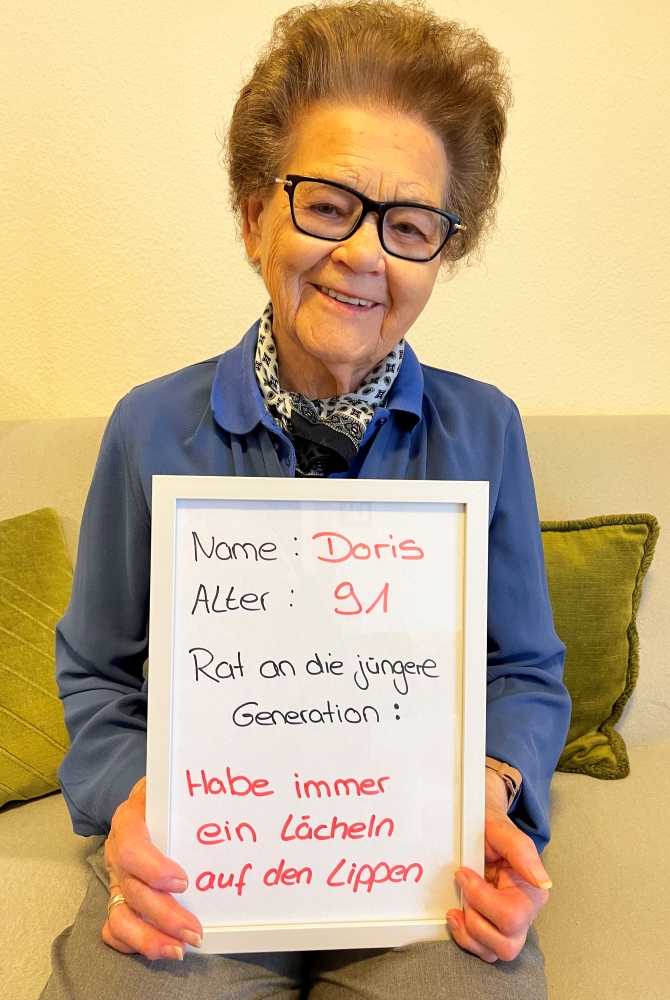 Name : Doris
Alter : 91
Rat an die jüngere
Generation :
Habe immer
ein Lächeln
auf den Lippen